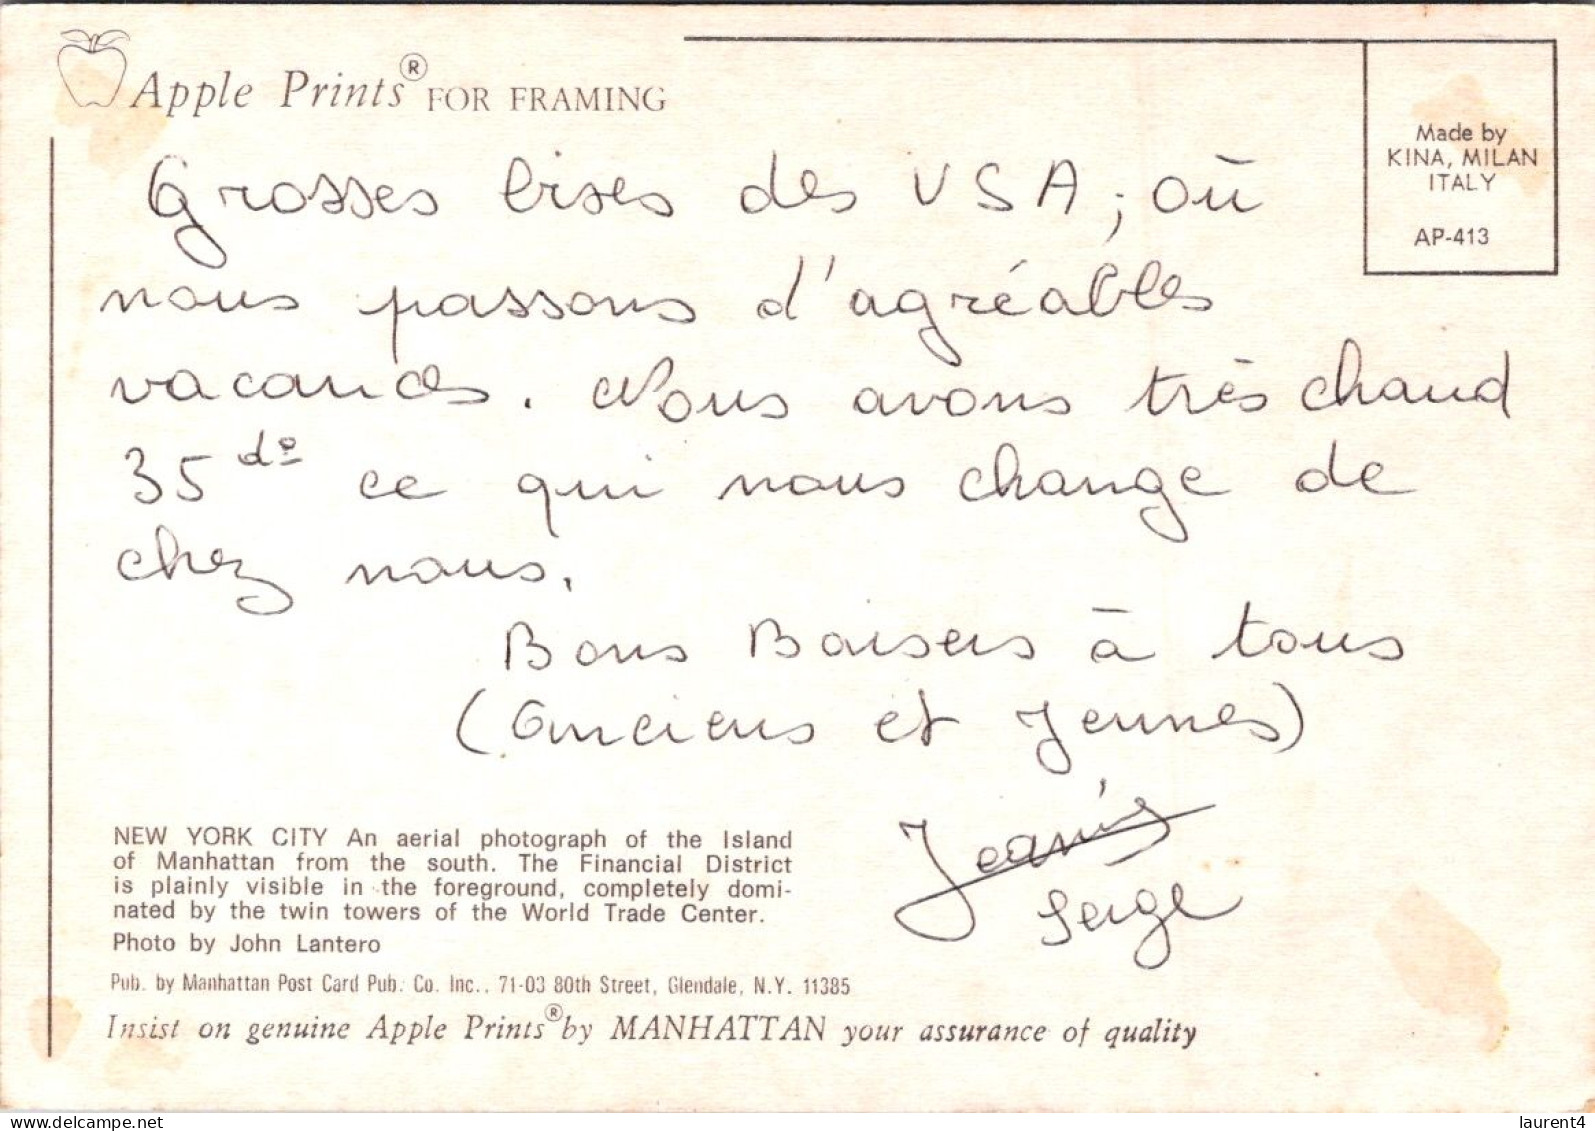 Apple Prints® FOR FRAMING
Made by
KINA, MILAN
ITALY
AP-413
Grosses bises des USA, où
nous passons d'agréables
vacances. Nous avons très chaud
35 d° ce qui nous change de
chez nous.
Bons Baisers à tous
(Anciens et Jeunes)
Serge
NEW YORK CITY An aerial photograph of the Island
of Manhattan from the south. The Financial District
is plainly visible in the foreground, completely domi-
nated by the twin towers of the World Trade Center.
Photo by John Lantero
Pub. by Manhattan Post Card Pub. Co. Inc., 71-03 80th Street, Glendale, N.Y. 11385
Insist on genuine Apple Prints® by MANHATTAN your assurance of quality
www.delcampe.net
laurent4